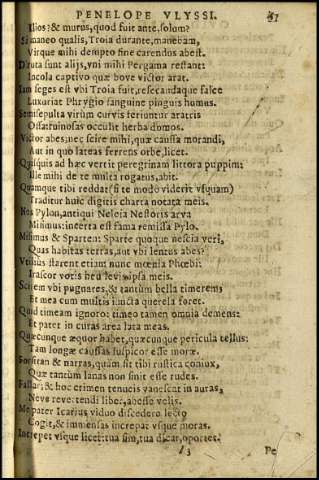 PENELOPE VLYSSI. 31
Ilios? & murus, quod fuit ante, solum?
Si maneo qualis, Troia durante, manebam,
Virque mihi dempto fine carendos abest.
Diruta sunt alijs, vni mihi Pergama restant:
Incola captiuo quæ boue victor arat.
Iam seges est vbi Troia fuit, resecandaque falce
Luxuriat Phrygio sanguine pinguis humus.
Semisepulta virûm curuis feriuntur aratris
Ossa, ruinosas occulit herba domos.
Victor abes; nec scire mihi, quæ caussa morandi,
Aut in quo lateas ferreus orbe, licet.
Quisquis ad hæc vertit peregrinam littora puppim;
Ille mihi de te multa rogatus, abit.
Quamque tibi reddat (si te modò viderit vsquam)
Traditur huic digitis charta notata meis.
Nos Pylon, antiqui Neleia Nestoris arva
Misimus: incerta est fama remissa Pylo.
Misimus & Sparten: Sparte quoque nescia veri,
Quas habitas terras, aut vbi lentus abes?
Vtilius starent etiam nunc mœnia Phœbi:
Irascor votis heu leuis ipsa meis.
Scirem vbi pugnares, & tantùm bella timerem;
Et mea cum multis iuncta querela foret.
Quid timeam ignoro: timeo tamen omnia demens:
Et patet in curas area lata meas.
Quæcunque æquor habet, quæcunque pericula tellus:
Tam longæ caussas suspicor esse moræ.
Forsitan & narras, quàm sit tibi rustica coniux,
Quæ tantùm lanas non sinit esse rudes.
Fallar; & hoc crimen tenues vanescat in auras,
Neve reuertendi liber, abesse velis.
Me pater Icarius viduo discedere lecto
Cogit, & immensas increpat vsque moras.
Increpet vsque licet: tua sim, tua dicar, oportet:
3 Pe